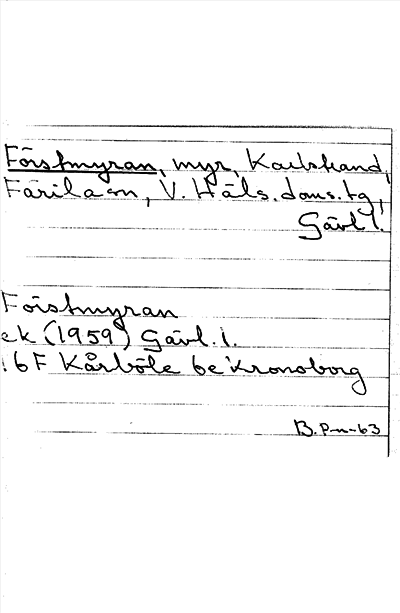 Förstmyran, myr, Karlstrand,
Färila sn, V. Häls. doms. tg,
Gävl. l.
Förstmyran
ek (1959) Gävl. l.
16F Kårböle 6e Kronoborg
B. P-n-63